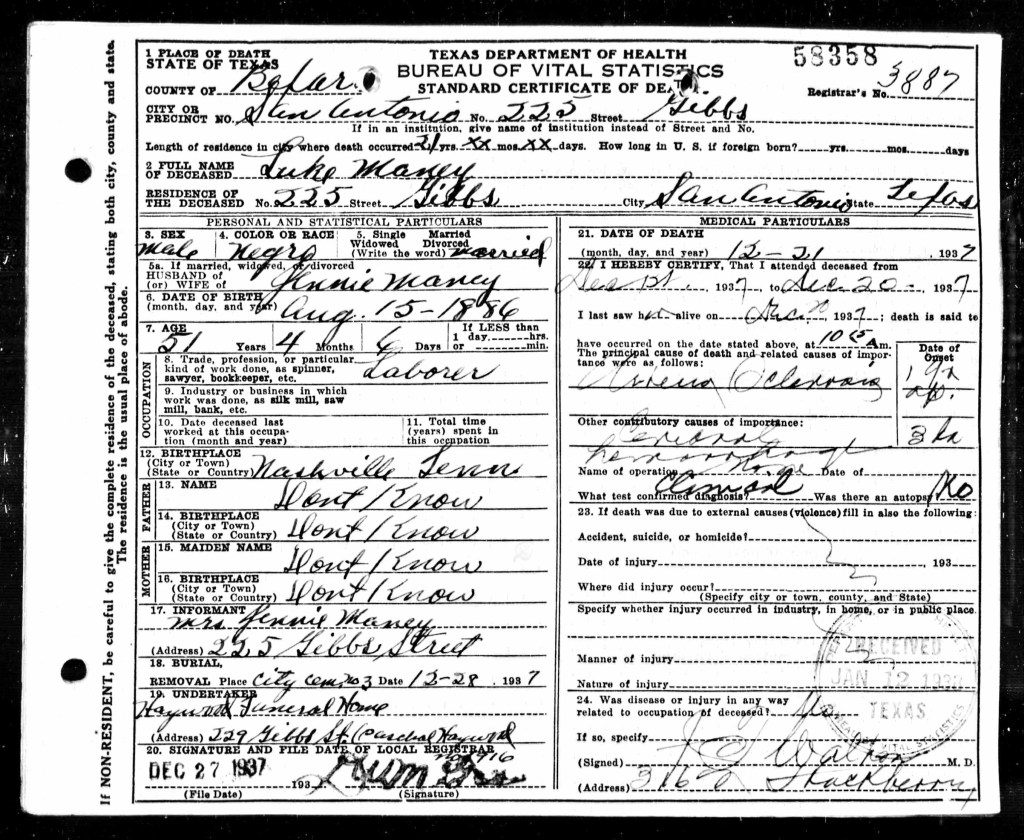 If NON-RESIDENT, be careful to give the complete residence of the deceased, stating both city, county and state.
The residence is the usual place of abode.
TEXAS DEPARTMENT OF HEALTH
BUREAU OF VITAL STATISTICS
STANDARD CERTIFICATE OF DEATH
58358
Registrar's No. 3887
1 PLACE OF DEATH
STATE OF TEXAS
COUNTY OF Bexar
CITY OR
PRECINCT NO. San Antonio No. 225 Street Gibbs
If in an institution, give name of institution instead of Street and No.
Length of residence in city where death occurred 21 yrs. xx mos. xx days. How long in U. S. if foreign born? yrs. mos. days
2 FULL NAME
OF DECEASED Luke Maney
RESIDENCE OF
THE DECEASED No. 225 Street Gibbs City San Antonio State Texas
PERSONAL AND STATISTICAL PARTICULARS
3. SEX Male
4. COLOR OR RACE Negro
5. Single Married
Widowed Divorced
(Write the word) married
5a. If married, widowed, or divorced
HUSBAND OF
(or) WIFE of Jennie Maney
6. DATE OF BIRTH
(month, day, and year) Aug. 15-1886
7. AGE
51 Years 4 Months 6 Days
If LESS than
1 day hrs.
or min.
OCCUPATION
8. Trade, profession, or particular
kind of work done, as spinner,
sawyer, bookkeeper, etc. Laborer
9. Industry or business in which
work was done, as silk mill, saw
mill, bank, etc.
10. Date deceased last
worked at this occupa-
tion (month and year)
11. Total time
(years) spent in
this occupation
12. BIRTHPLACE
(City or Town)
(State or Country) Nashville Tenn
FATHER
13. NAME Dont Know
14. BIRTHPLACE
(City or Town)
(State or Country) Dont Know
MOTHER
15. MAIDEN NAME Dont Know
16. BIRTHPLACE
(City or Town)
(State or Country) Dont Know
17. INFORMANT
Mrs Jennie Maney
(Address) 225 Gibbs Street
18. BURIAL,
REMOVAL Place City Cem no 3 Date 12-28, 1937
19. UNDERTAKER
Haywood Funeral Home
(Address) 229 Gibbs St. Paschal Haywood
20. SIGNATURE AND FILE DATE OF LOCAL REGISTRAR
DEC 27 1937 193
(File Date) (Signature)
MEDICAL PARTICULARS
21. DATE OF DEATH
(month, day, and year) 12-21, 1937
22. I HEREBY CERTIFY, That I attended deceased from
Sept. 1937 to Dec. 20- 1937
I last saw h alive on Dec. 1937; death is said to
have occurred on the date stated above, at 10 05 Am.
The principal cause of death and related causes of impor-
tance were as follows:
Date of
Onset
Other contributory causes of importance:
Cerebral
hemorrhage
3 da
Name of operation None Date of
What test confirmed diagnosis? Clinical Was there an autopsy? No
23. If death was due to external causes (violence) fill in also the following:
Accident, suicide, or homicide?
Date of injury , 193
Where did injury occur?
(Specify city or town, county, and State)
Specify whether injury occurred in industry, in home, or in public place.
Manner of injury
Nature of injury
RECEIVED
JAN 12 1938
TEXAS
VITAL STATISTICS
24. Was disease or injury in any way
related to occupation of deceased? No
If so, specify
(Signed) Walton M. D.
(Address) Hackberry